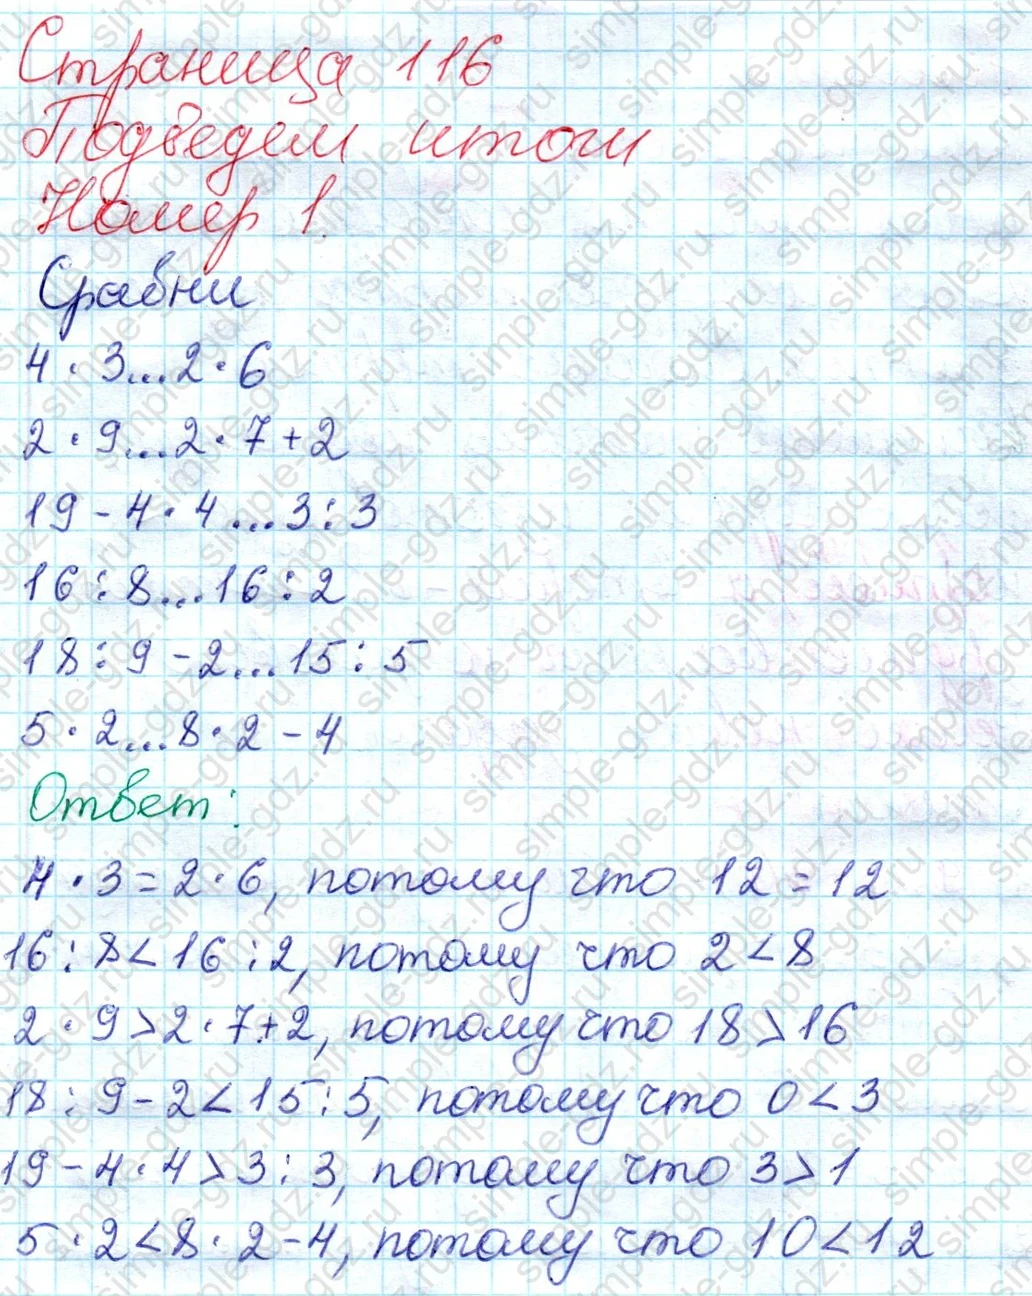 Страница 116
Подведем итоги
Номер 1.
Сравни
4 · 3...2 · 6
2 · 9...2 · 7 + 2
19 - 4 · 4...3 : 3
16 : 8...16 : 2
18 : 9 - 2...15 : 5
5 · 2...8 · 2 - 4
Ответ:
4 · 3 = 2 · 6, потому что 12 = 12
16 : 8 < 16 : 2, потому что 2 < 8
2 · 9 > 2 · 7 + 2, потому что 18 > 16
18 : 9 - 2 < 15 : 5, потому что 0 < 3
19 - 4 · 4 > 3 : 3, потому что 3 > 1
5 · 2 < 8 · 2 - 4, потому что 10 < 12
simple-gdz.ru